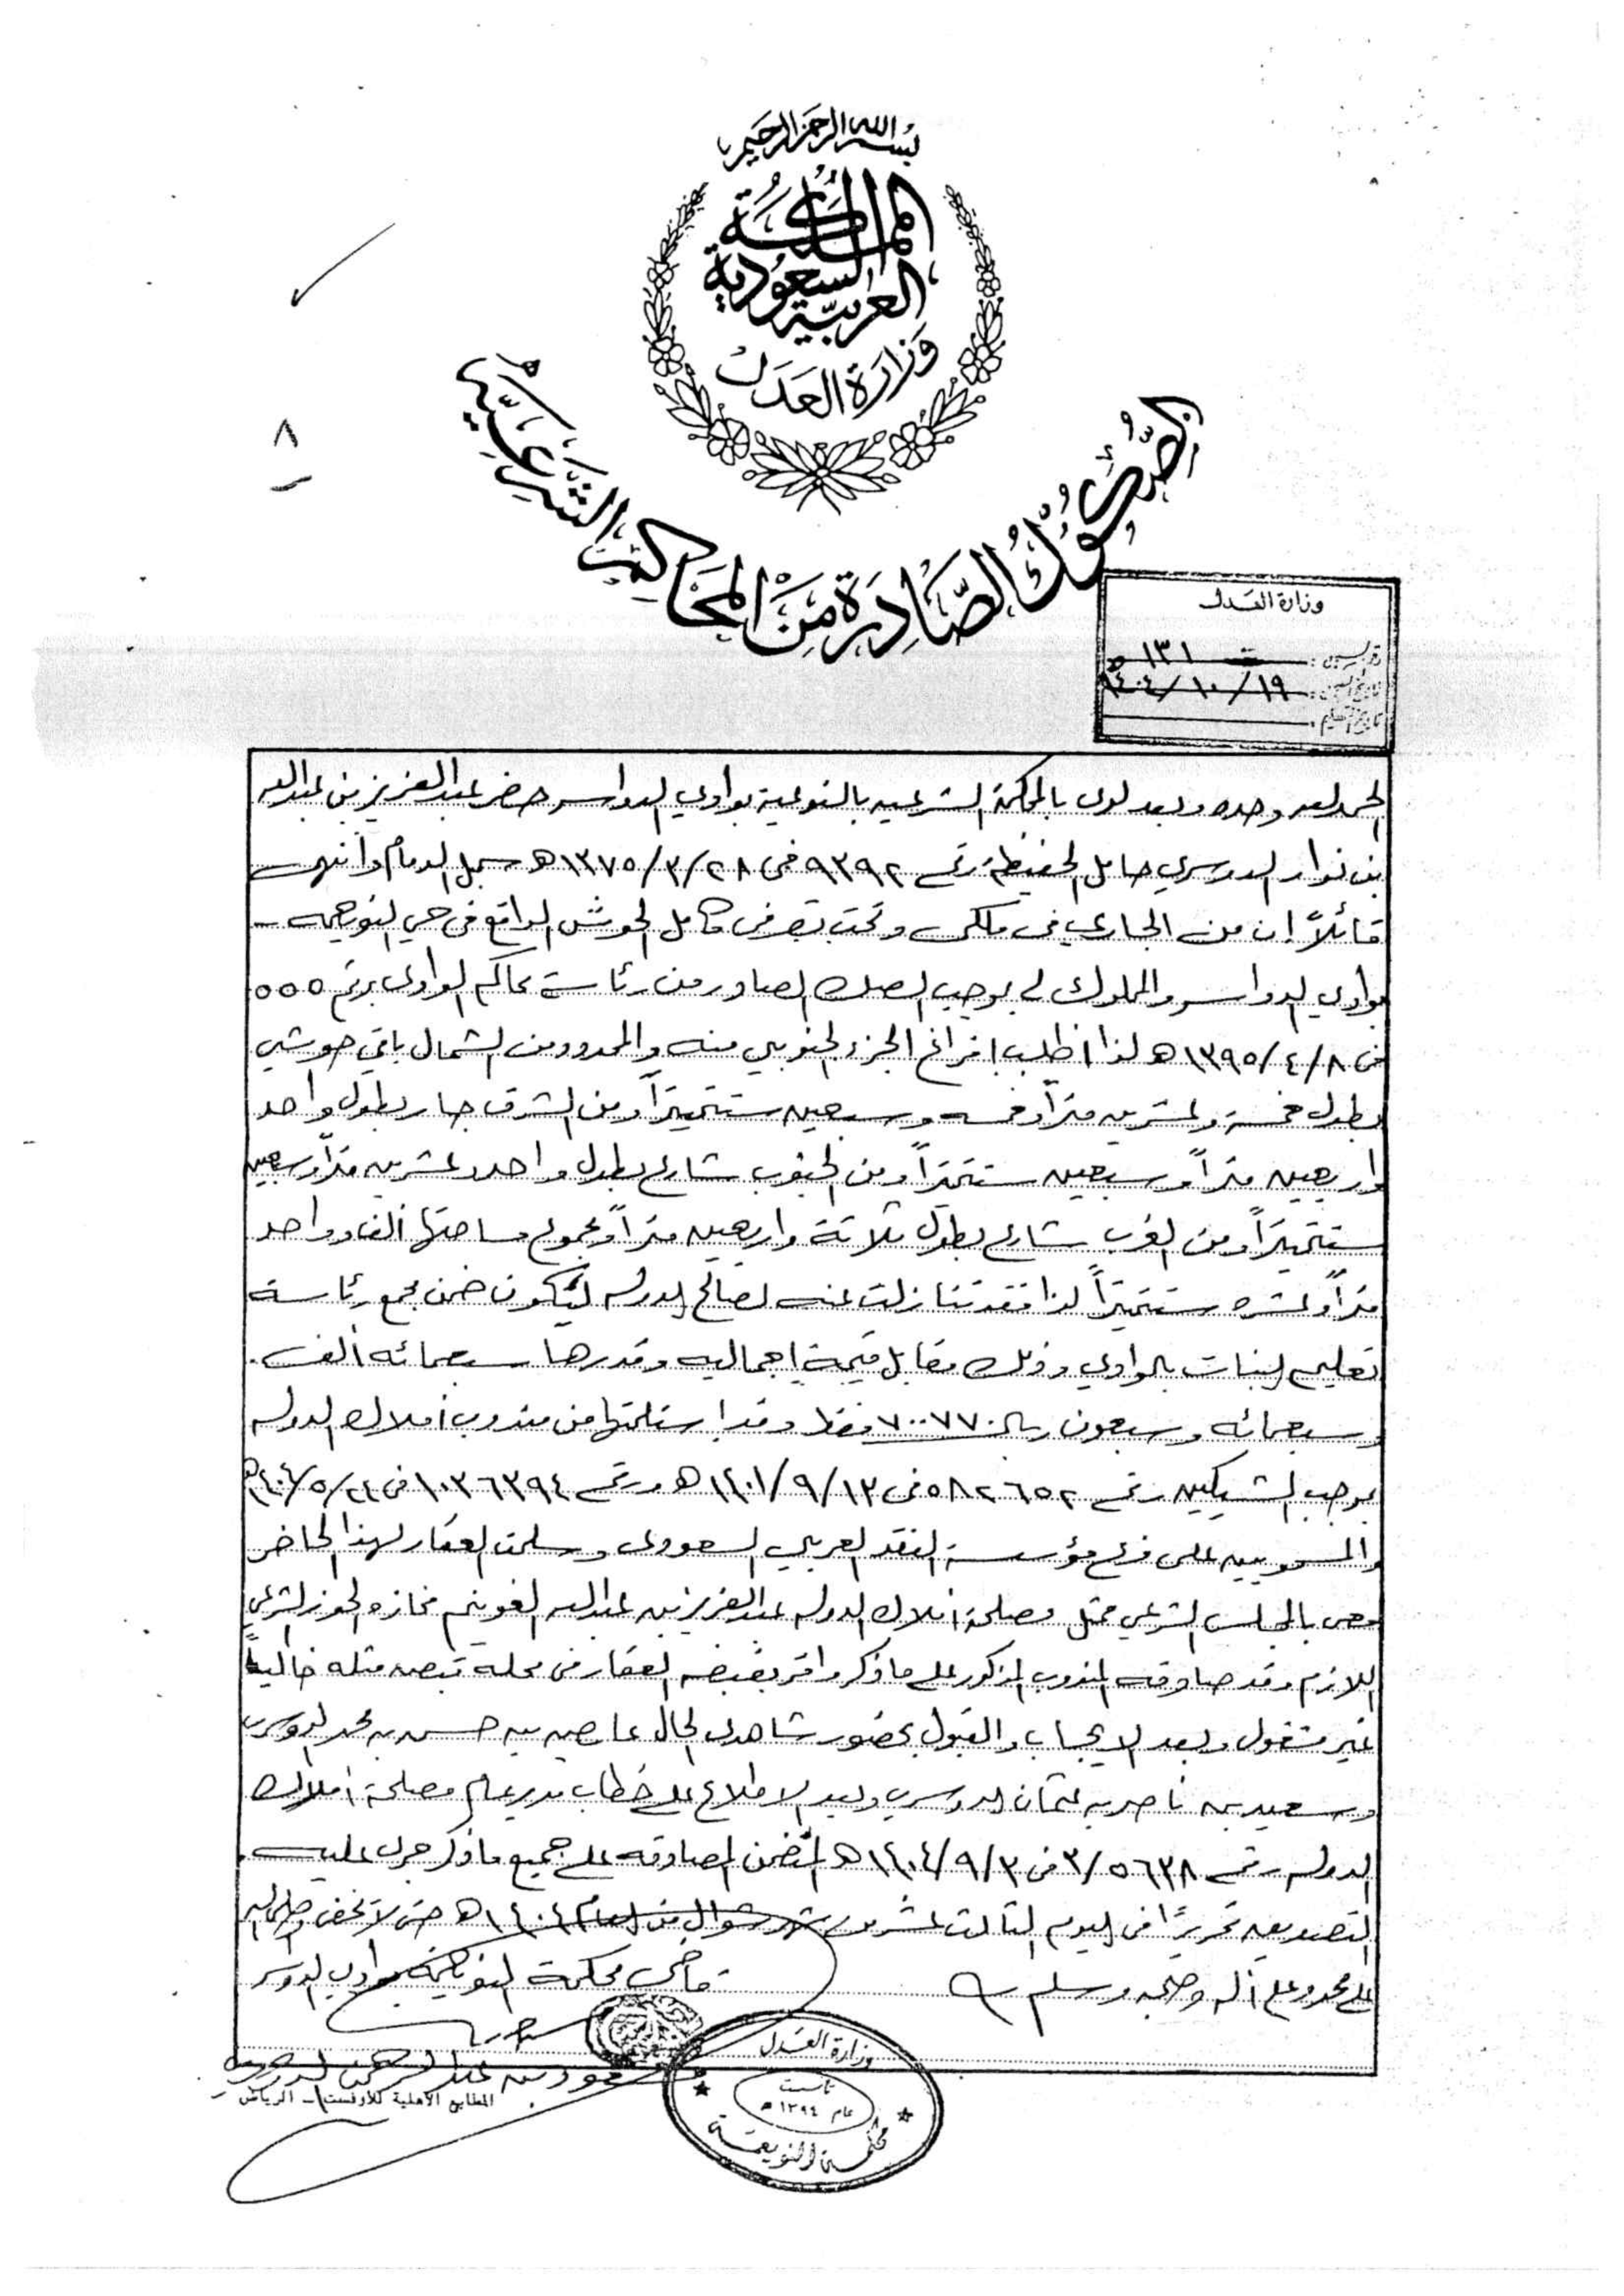 بسم الله الرحمن الرحيم
المملكة
العربية السعودية
وزارة العدل
الصكوك الصادرة من المحاكم الشرعية
٨
وزارة العدل
١٣١
١٤٠٤/١٠/١٩ هـ
الحمد لله وحده وبعد لدى بالمحكمة الشرعيه بالنويعمة بوادي الدواسر حضر عبدالعزيز بن عبدالله
بن نوار الدوسري حامل الحفيظة رقم ٩٣٩٢ فى ١٣٧٥/٣/٢٨ هـ سجل الدمام وأنهى
قائلاً إن من الجاري في ملكي وتحت تصرفي كامل الحوش الواقع في حي النويعمه
بوادي الدواسر والمملوك لي بموجب الصك الصادر من رئاسة محاكم الوادى برقم ٥٥٥
فى ١٣٩٥/٤/٨ هـ لذا اطلب افراغ الجزء الجنوبي منه والمحدود من الشمال باقي حوشي
بطول خمسة وعشرين متراً وخمسه وسبعين سنتميتراً ومن الشرق جار بطول واحد
واربعين متراً وسبعين سنتمتراً ومن الجنوب شارع بطول واحد وعشرين متراً وسبعين
سنتميتراً ومن الغرب شارع بطول ثلاثة واربعين متراً ومجموع مساحتها ألف وواحد
متراً وعشره سنتميتراً لذا فقد تنازلت عنه لصالح الدوله ليكون ضمن مجمع رئاسة
تعليم البنات بالوادي وذلك مقابل قيمة إجماليه وقدرها سبعمائه ألف
وسبعمائه وسبعون ريال ٧٠٠٧٧٠ فقط وقد استلمتها من مندوب أملاك الدوله
بموجب الشيكين رقم ٥٨٢٦٥٢ فى ١٤٠١/٩/١٣ هـ ورقم ١٠٣٦٣٩٤ فى ١٤٠٤/٥/٢٤ هـ
والمسحوبين على فرع مؤسسة النقد العربي السعودى وسلمت العقار لهذا الحاضر
معى بالمجلس الشرعي ممثل مصلحة أملاك الدوله عبدالعزيز بن عبدالله الغوينم فحازه الحوز الشرعي
اللازم وقد صادقه المندوب المذكور على ما ذكر واقر بقبضه العقار في محله قبض مثله خالياً
غير مشغول وبعد الايجاب والقبول بحضور شاهدى الحال بن حسن بن محمد الدوسري
وسعيد بن ناصر بن عثمان الدوسري وبعد الاطلاع على خطاب مدير عام مصلحة أملاك
الدوله رقم ٣/٥٦٣٨ فى ١٤٠٤/٩/٣ هـ المتضمن المصادقه على جميع ما ذكر جرى عليه
التصديق تحريرًا فى اليوم الثالث عشر من شهر شوال من العام ١٤٠٤ هـ حتى لا يخفى وصلى الله
على محمد وعلى آله وصحبه وسلم
قاضى محكمة النويعمة بوادي الدواسر
سعود بن عبدالرحمن
المطابع الأهلية للأوفست - الرياض
وزارة العدل
تأسست
عام ١٣٩٤ هـ
محكمة النويعمة